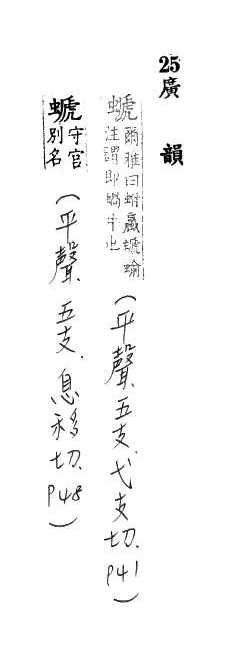 25廣韻
螔爾雅曰蚹蠃螔蝓注謂即蝸牛也(平聲.五支.弋支切.P41)
螔守宮別名(平聲.五支.息移切.P48)